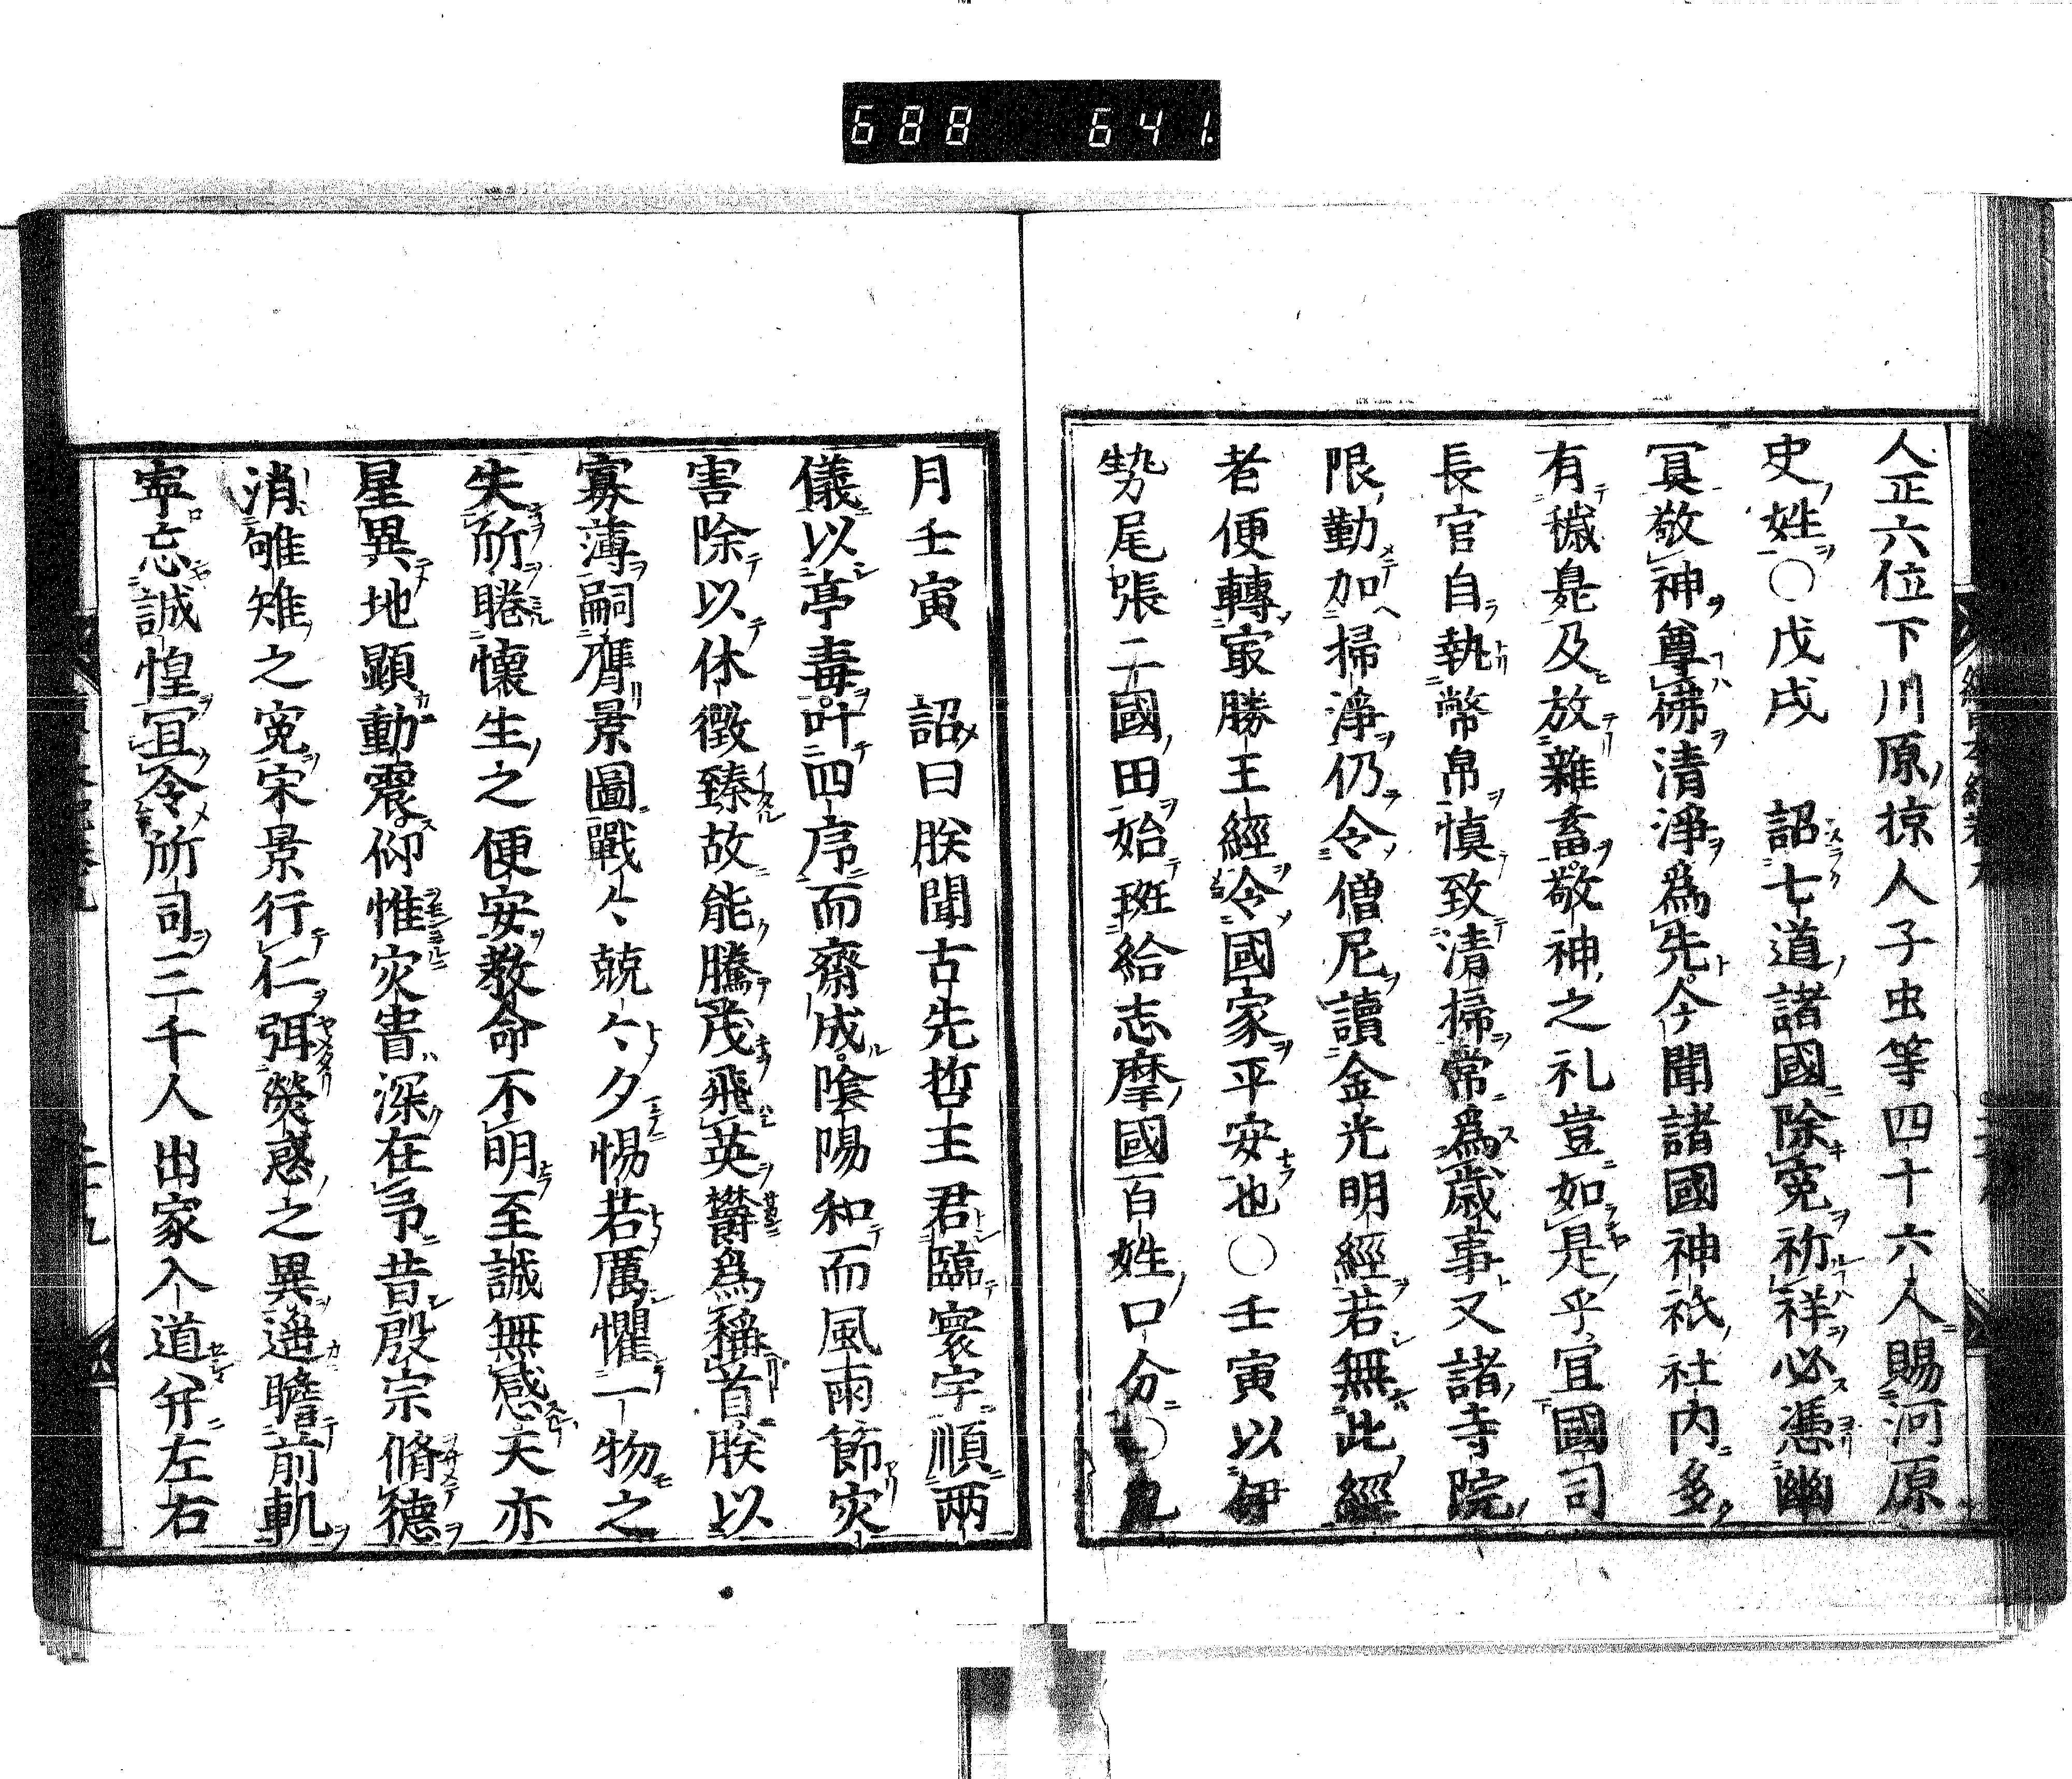 688 641
人正六位下川原掠人子虫等四十六人賜河原
史姓○戊戌 詔七道諸國除寃祈祥必憑幽
冥敬神尊佛清淨爲先今聞諸國神祇社内多
有穢臰及放雜畜敬神之礼豈如是乎宜國司
長官自執幣帛慎致清掃常爲歳事又諸寺院
限勤加掃淨仍令僧尼讀金光明經若無此經
者便轉冣勝王經令國家平安也○壬寅以伊
勢尾張二國田始班給志摩國百姓口分○九
月壬寅 詔曰朕聞古先哲王君臨寰宇順兩
儀以亭毒叶四序而齋成陰陽和而風雨節灾
害除以休徴臻故能騰茂飛英欝爲稱首朕以
寡薄嗣膺景圖戰〻兢〻夕惕若厲懼一物之
失所睠懷生之便安教命不明至誠無感天亦
星異地顕動震仰惟灾眚深在予昔殷宗脩德
消雊雉之寃宋景行仁弭熒惑之異遥瞻前軌
寧忘誠惶宜令所司三千人出家入道并左右